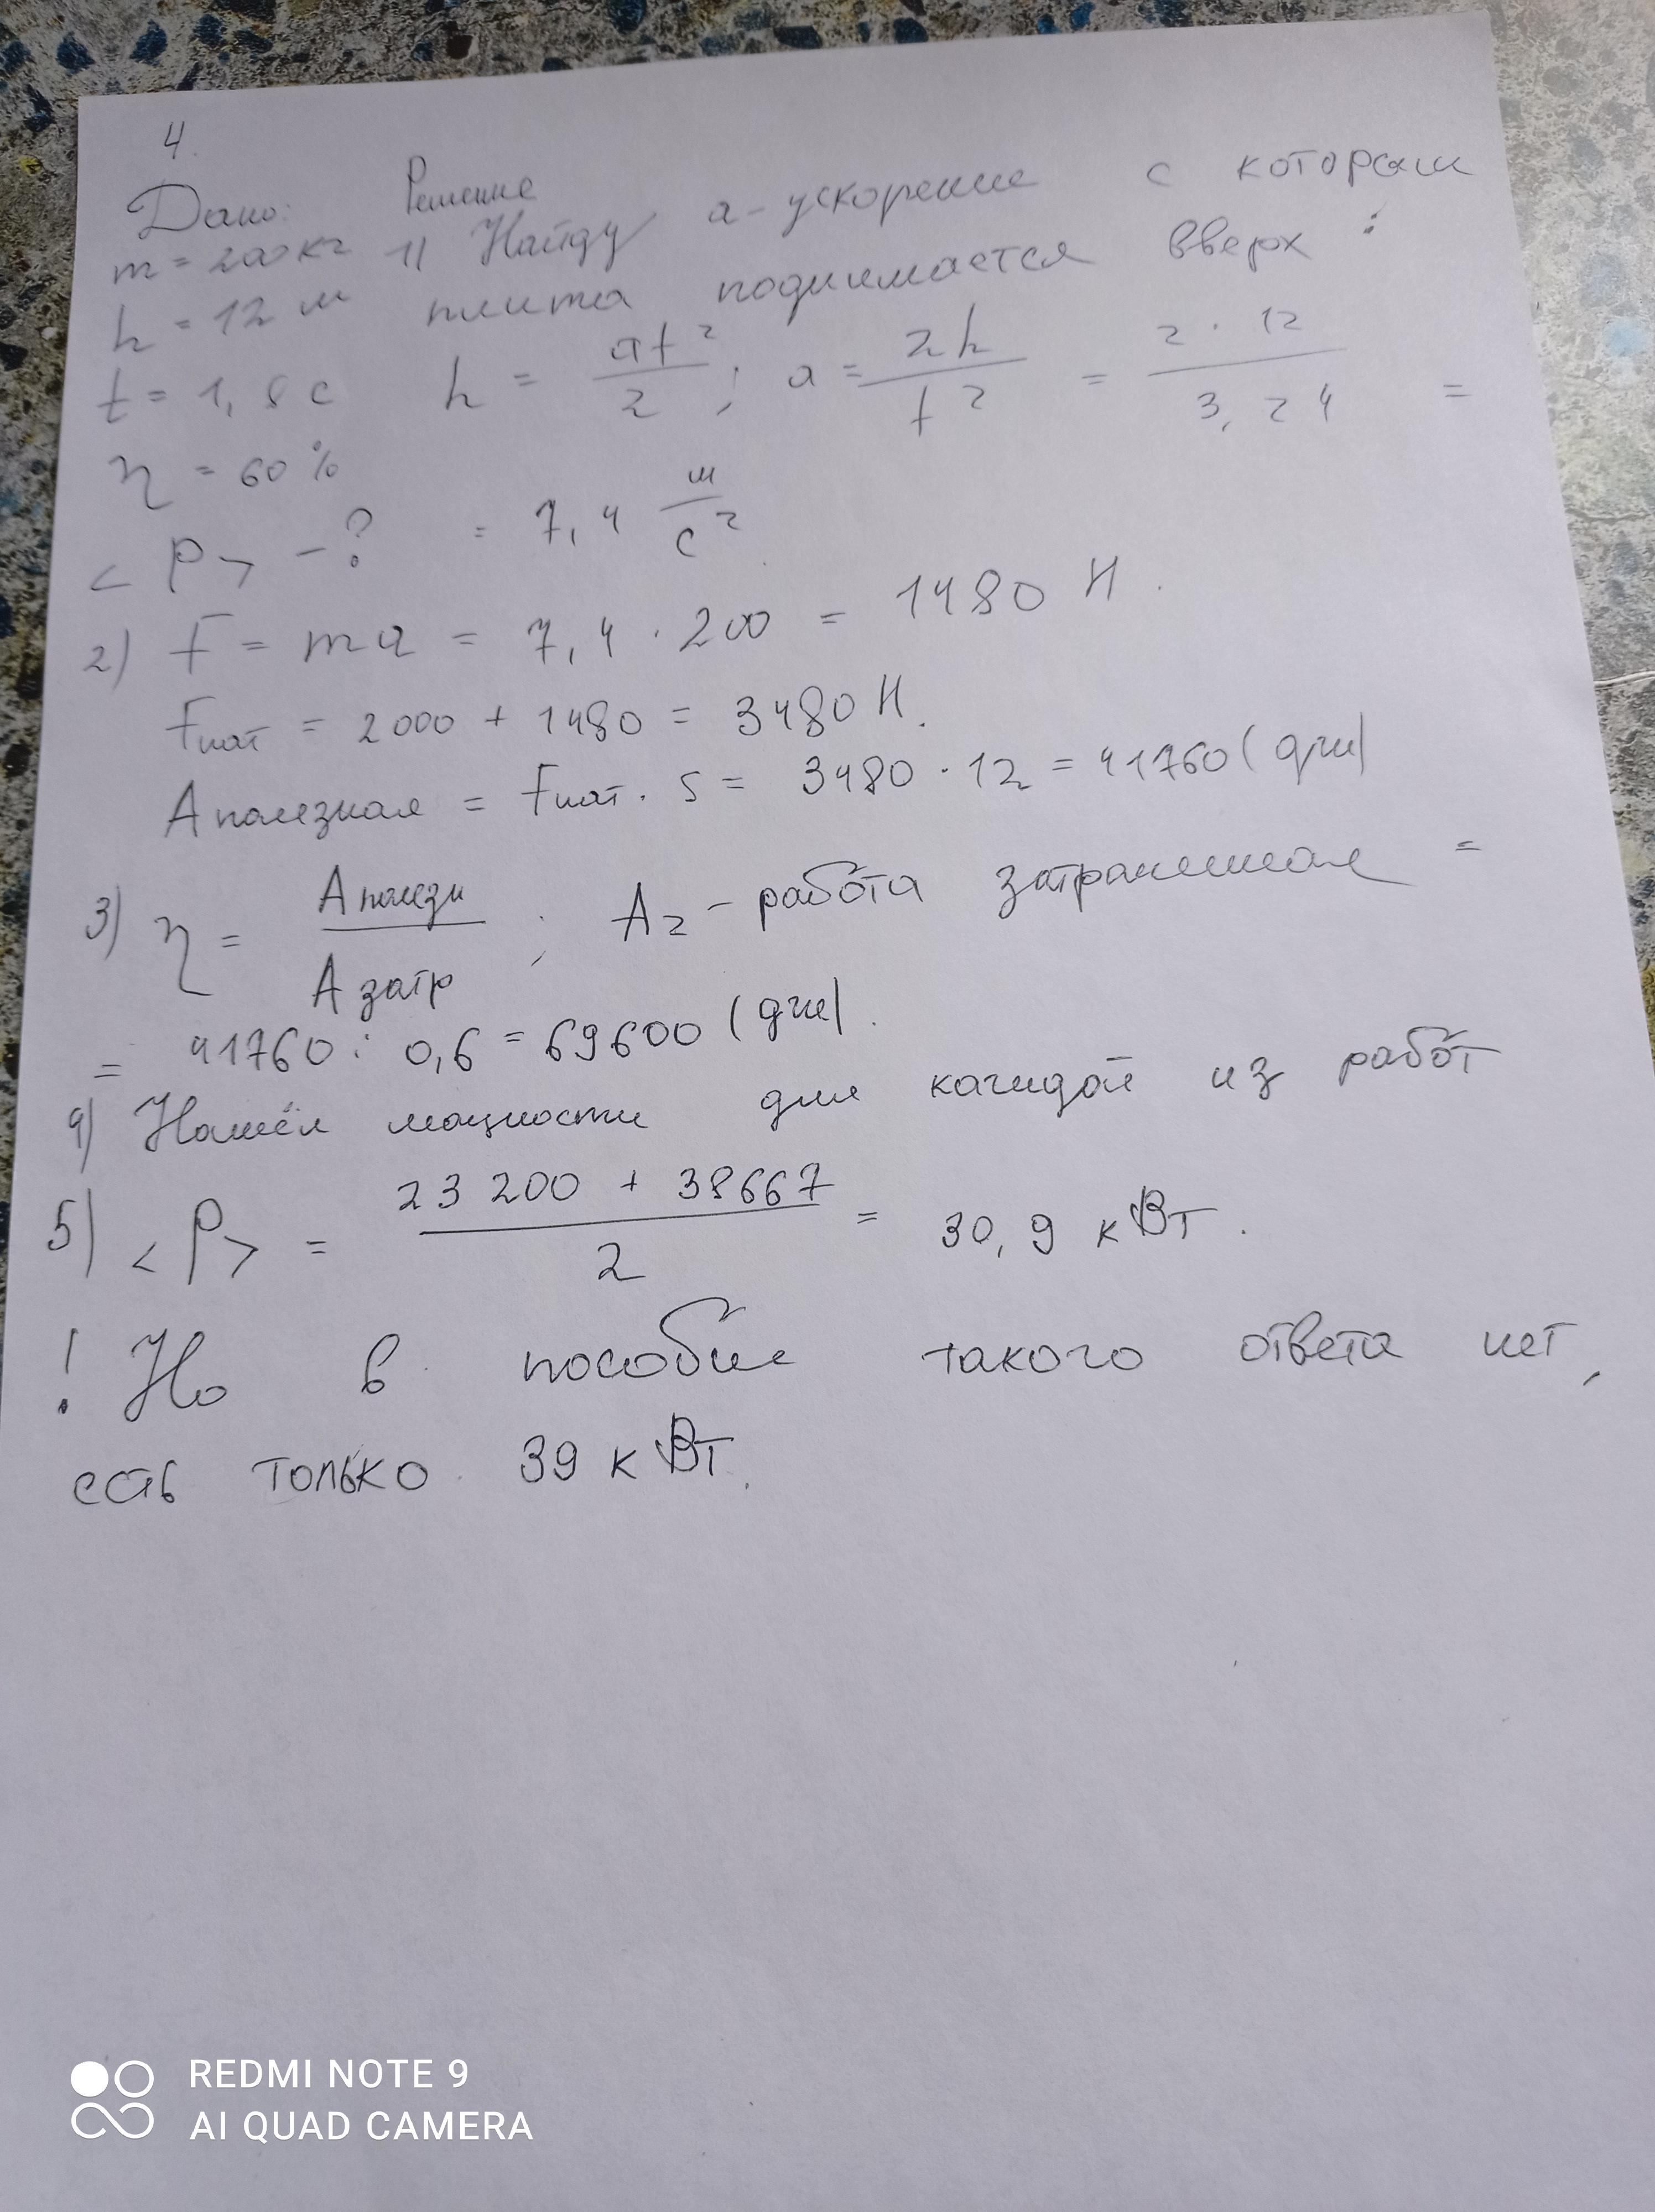 4.
Дано: Решение
m = 200 кг 1) Найду а - ускорение с котором
h = 12 м плита поднимается вверх :
t = 1,8 с h = at²/2 ; a = 2h/t² = 2 · 12/3,24 =
η = 60 % = 7,4 м/с²
< P > - ?
2) F = ma = 7,4 · 200 = 1480 Н.
Fнат = 2000 + 1480 = 3480 Н.
A полезная = Fнат · S = 3480 · 12 = 41760 (дж)
3) η = A полезн/A затр ; A2 - работа затраченная =
= 41760 : 0,6 = 69600 (дж).
4) Нашёл мощности для каждой из работ
5) < P > = 23 200 + 38667/2 = 30,9 кВт.
! Но в пособие такого ответа нет,
есть только 39 кВт.
REDMI NOTE 9
AI QUAD CAMERA